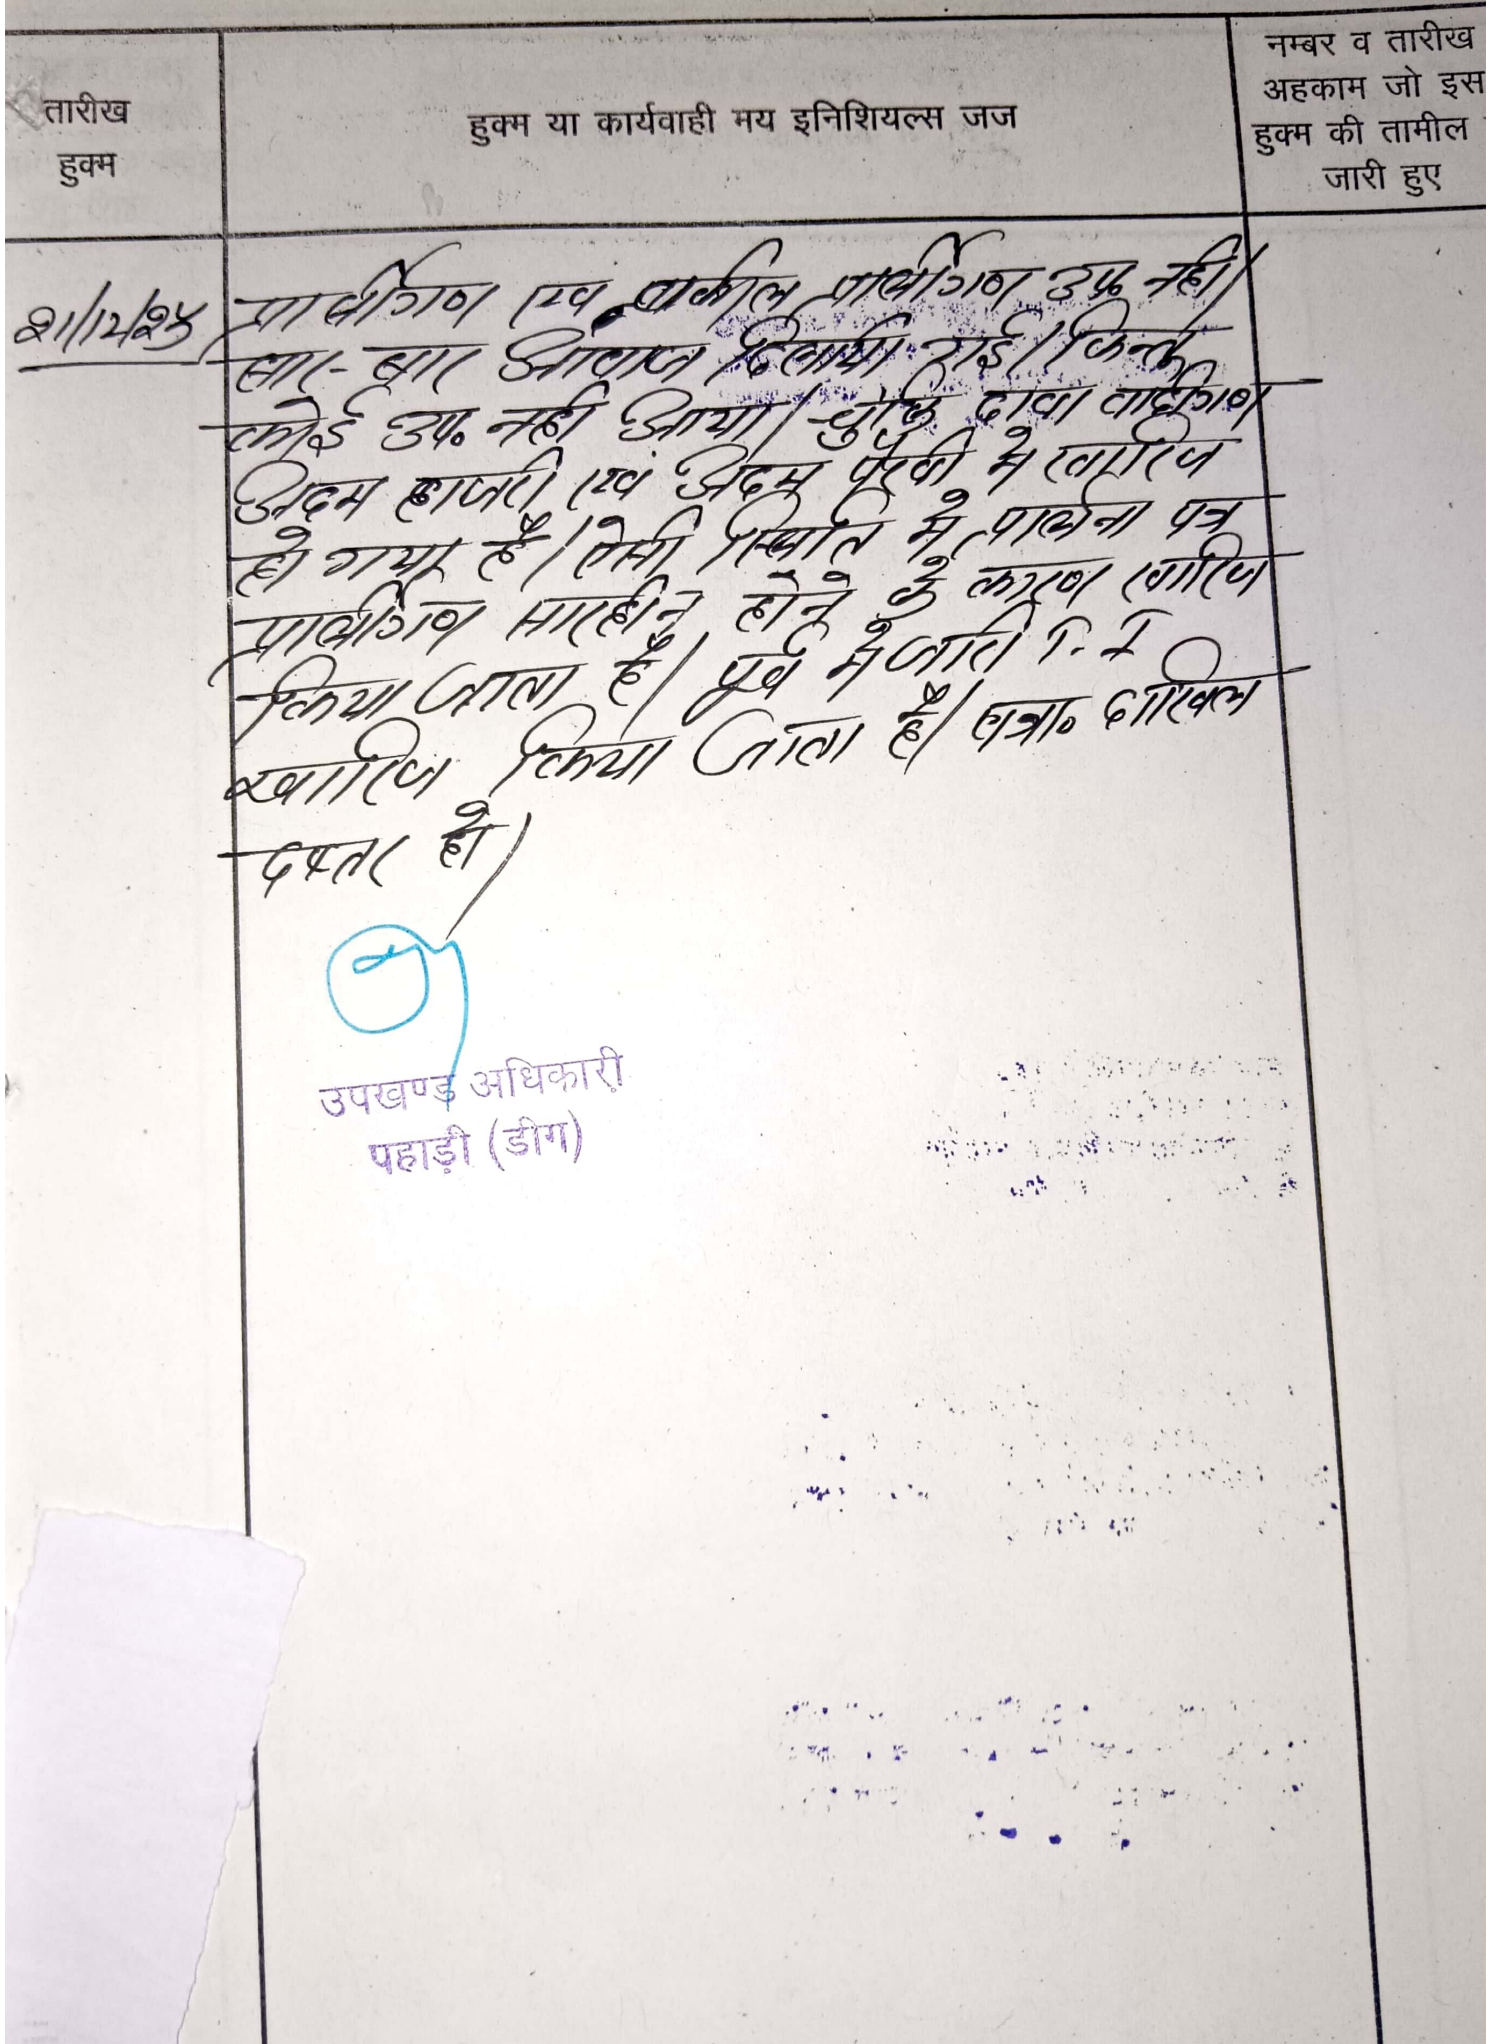 तारीख
हुक्म
हुक्म या कार्यवाही मय इनिशियल्स जज
नम्बर व तारीख
अहकाम जो इस
हुक्म की तामील
जारी हुए
प्रार्थीगण एवं वकील प्रार्थीगण उप. नही।
बार-बार आवाज दिलायी गई। किन्तु
कोई उप. नही आया। चुंकि दावा वादीगण
अदम हाजरी एवं अदम पैरवी मे खारिज
हो गया है। ऐसी स्थिति मे प्रार्थना पत्र
प्रार्थीगण सारहीन होने के कारण खारिज
किया जाता है। पूर्व मे जारी T. I
खारिज किया जाता है। पत्रा॰ दाखिल
दफ्तर हो।
उपखण्ड अधिकारी
पहाड़ी (डीग)